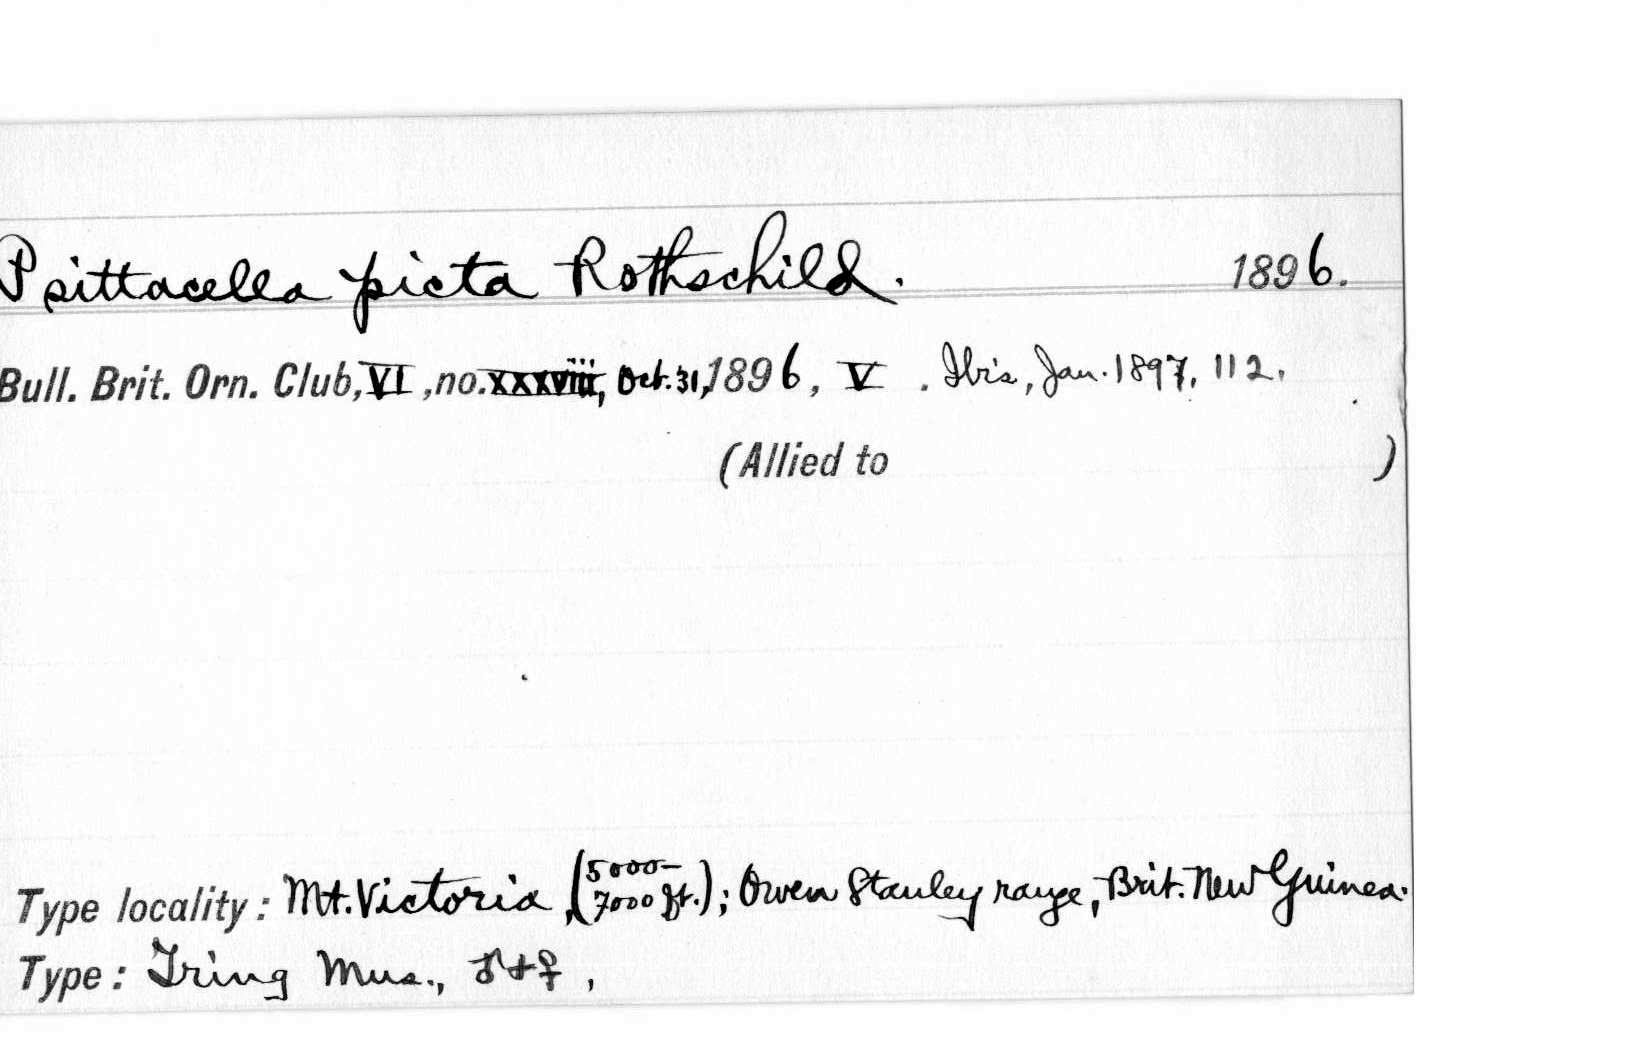 Psittacella picta Rothschild. 1896.
Bull. Brit. Orn. Club, VI, no. xxxviii, Oct. 31, 1896, V . Ibis, Jan. 1897, 112.
(Allied to )
Type locality: Mt. Victoria, (5000-7000 ft.); Owen Stanley range, Brit. New Guinea.
Type: Tring Mus., ♂+♀,